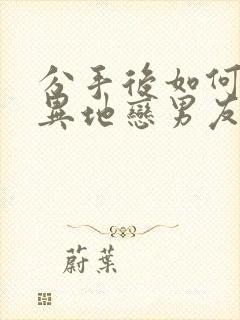 分手後如何
異地戀男友
蔚葉